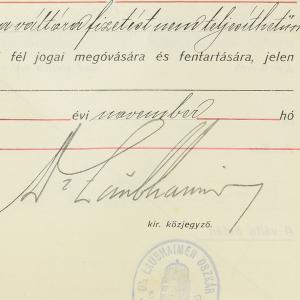 a váltóra fizetést nem teljesíthetün
fél jogai megóvására és fentartására, jelen
évi november hó
Dr Laubhaimer
kir. közjegyző.
DR LAUBHAIMER OSZKÁR